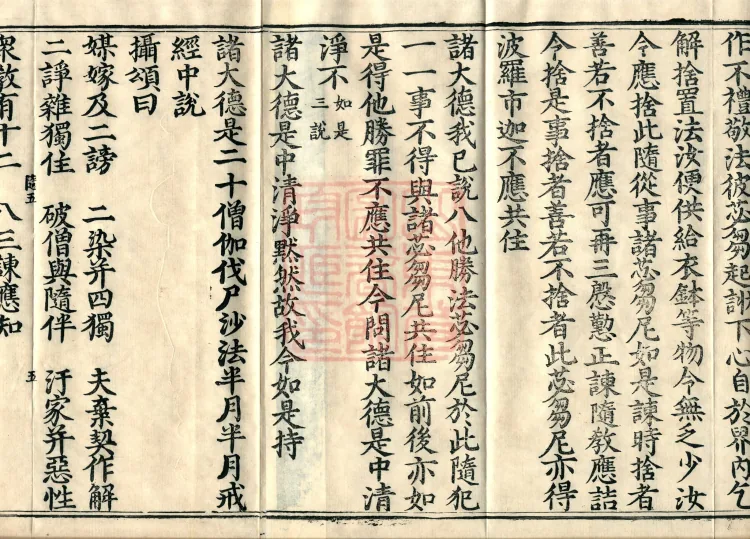 作不禮敬法彼苾芻起謝下心自於界內乞
解捨置法汝便供給衣鉢等物令無乏少汝
令應捨此隨從事諸苾芻尼如是諫時捨者
善若不捨者應可再三慇懃正諫隨教應詰
令捨是事捨者善若不捨者此苾芻尼亦得
波羅市迦不應共住
諸大德我已說八他勝法苾芻尼於此隨犯
一一事不得與諸苾芻尼共住如前後亦如
是得他勝罪不應共住今問諸大德是中清
淨不如是三說
諸大德是中清淨默然故我今如是持
諸大德是二十僧伽伐尸沙法半月半月戒
經中說
攝頌曰
媒嫁及二謗 二染并四獨 夫棄契作解
二諍雜獨住 破僧與隨伴 汙家并惡性
隨五 五
眾教有十二 八三諫應知